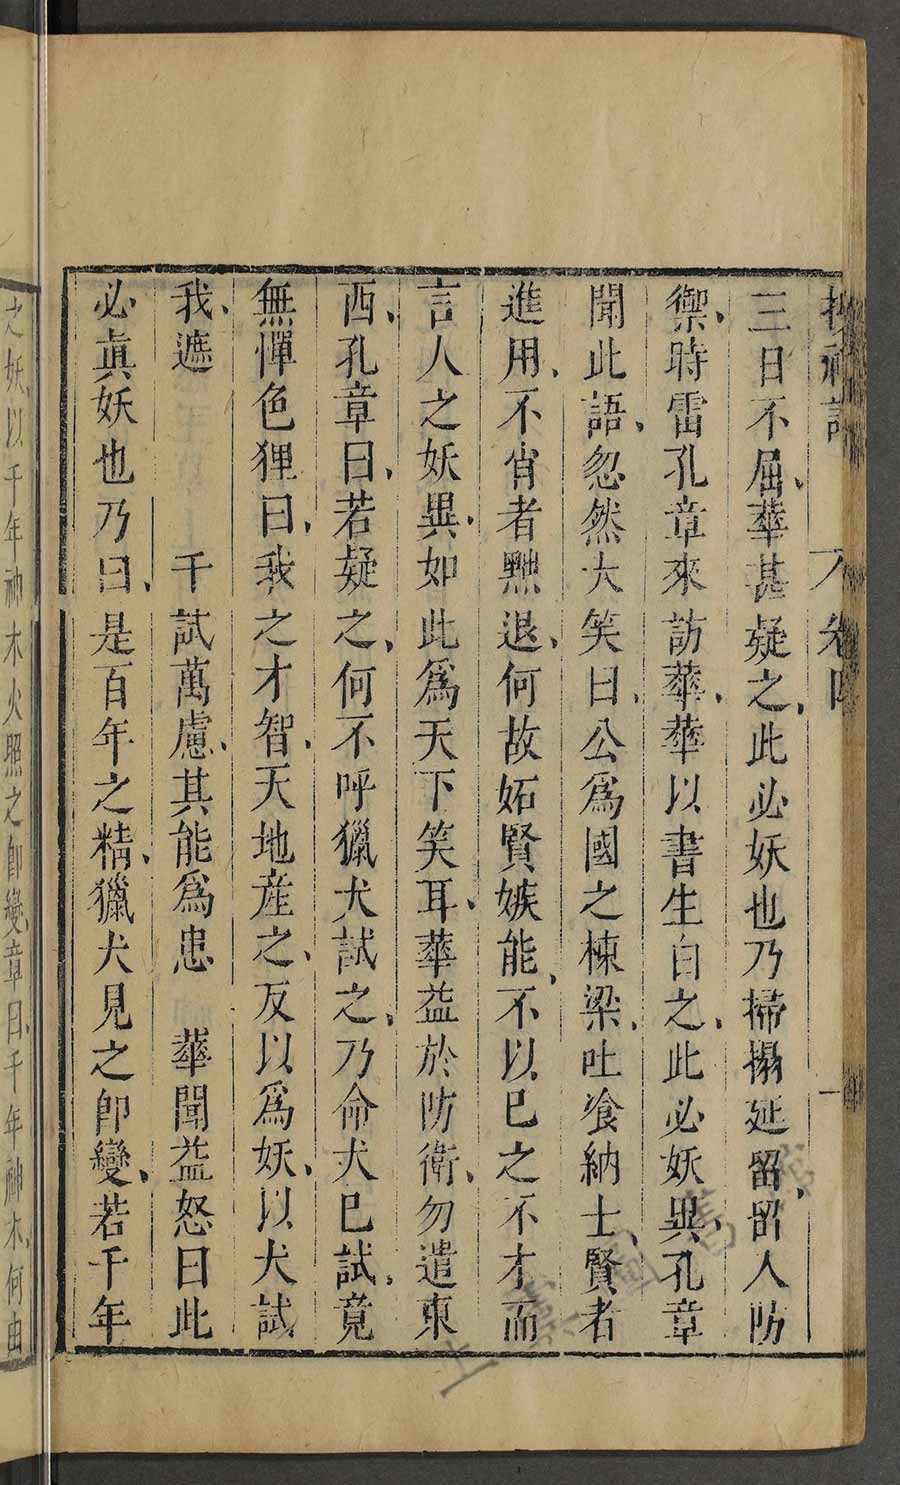 搜神記 卷四 一
三日不屈、華甚疑之、此必妖也乃掃搨延留、留人防
禦、時雷孔章來訪華、華以書生白之、此必妖異、孔章
聞此語、忽然大笑曰、公爲國之棟梁、吐飡納士、賢者
進用、不肖者黜退、何故妬賢嫉能、不以已之不才而
言人之妖異、如此爲天下笑耳、華益於防衛、勿遣東
西、孔章曰、若疑之、何不呼獵犬試之、乃命犬已試、竟
無憚色狸曰、我之才智、天地産之、反以爲妖、以犬試
我、遮 千試萬慮、其能爲患 華聞益怒曰此
必眞妖也乃曰、是百年之精、獵犬見之卽變、若千年
之妖、以千年神木火照之卽變、章曰、千年神木、何由